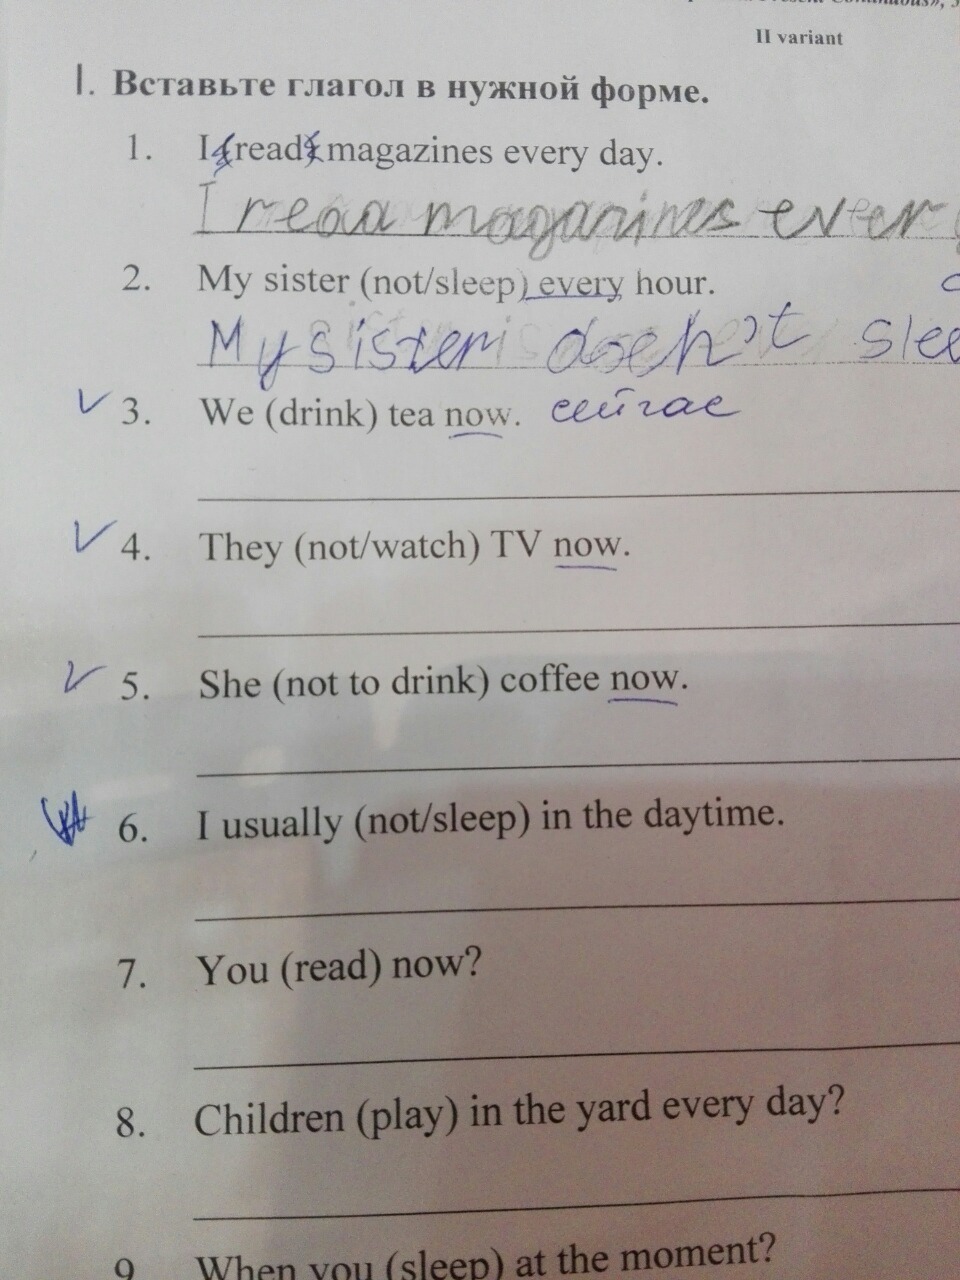 Continuous»,
II variant
1. Вставьте глагол в нужной форме.
1. I (read) magazines every day.
I read magazines every
2. My sister (not/sleep) every hour.
My sister doen't slee
3. We (drink) tea now. сейчас
4. They (not/watch) TV now.
5. She (not to drink) coffee now.
6. I usually (not/sleep) in the daytime.
7. You (read) now?
8. Children (play) in the yard every day?
9. When you (sleep) at the moment?